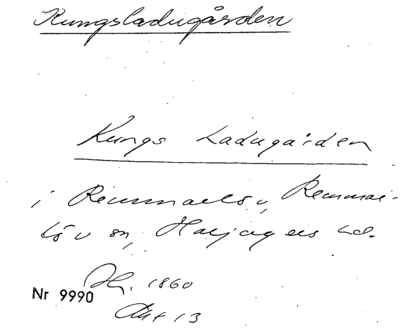 Kungsladugården
Kungs Ladugården
i Remmarlöv, Remmar-
löv sn, Harjagers hd.
Nr 9990
1860
Akt 13